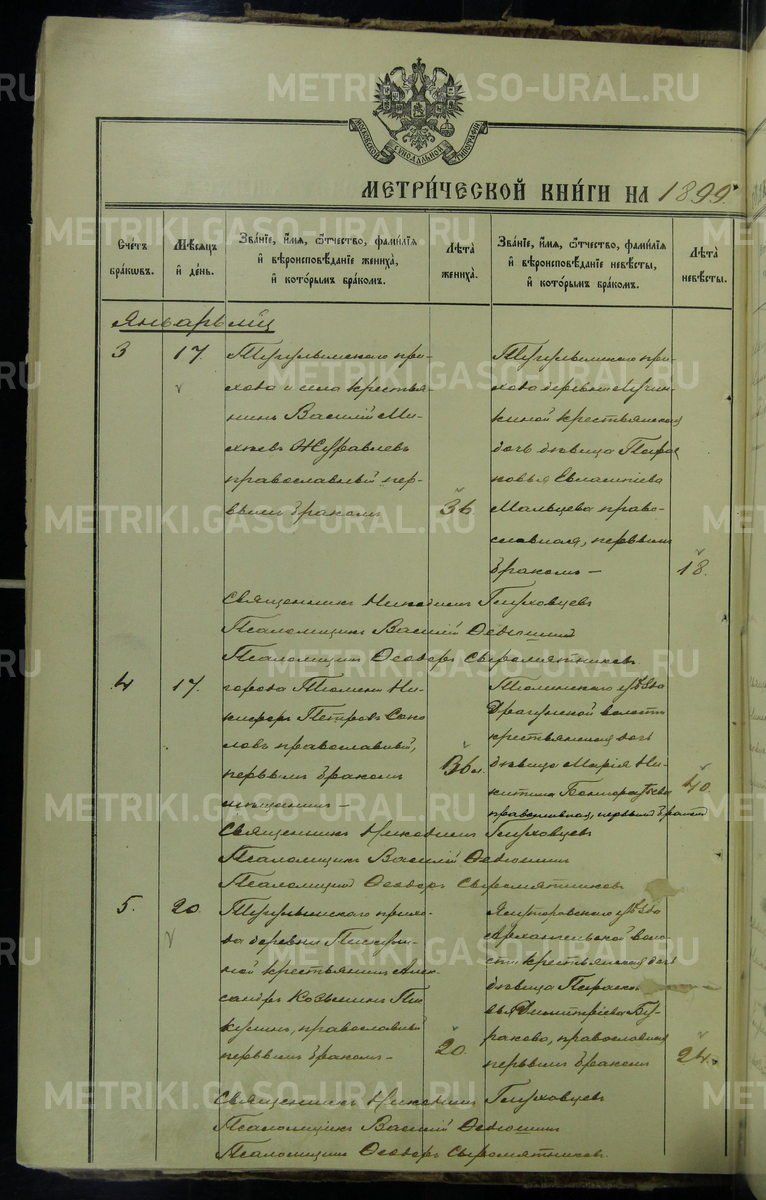 МОСКОВСКОЙ СѴНОДАЛЬНОЙ ТИПОГРАФІИ
МЕТРИ́ЧЕСКОЙ КНИ́ГИ НА 1899.
Счетъ бракѡвъ.
Мѣсяцъ и день.
Зва́нїе, и́мя, ѻ́тчество, фами́лїя и҆ вѣроисповѣ́данїе жениха̀, и҆ кото́рымъ бра́комъ.
Лѣта̀ жениха̀.
Зва́нїе, и́мя, ѻ́тчество, фами́лїя и҆ вѣроисповѣ́данїе невѣ́сты, и҆ кото́рымъ бра́комъ.
Лѣта̀ невѣ́сты.
Январь мцъ
3
17.
Тугулымскаго при-
хода и села крестья-
нинъ Василій Ми-
хѣевъ Журавлевъ
православный пер-
вымъ бракомъ
36
Тугулымскаго при-
хода деревни
киной крестьянская
дочь дѣвица Парас
ковья Евлампіева
Мальцева право-
славная, первымъ
бракомъ —
18.
Священникъ Никодимъ Глуховцевъ
Псаломщикъ Василій
Псаломщикъ Ѳеодоръ Сыромятниковъ
4
17.
города Тюмени Ни-
кифоръ Петровъ Соко
ловъ православный,
первымъ бракомъ
36 л.
Тюменскаго уѣзда
волости
крестьянская дочь
дѣвица Марія Ни-
китина
православная, первымъ бракомъ
40.
Священникъ Никодимъ Глуховцевъ
Псаломщикъ Василій
Псаломщикъ Ѳеодоръ Сыромятниковъ
5.
20.
Тугулымскаго прихо-
да деревни Пискули-
ной крестьянинъ Алек-
сандръ Козьминъ Пис
кулинъ, православный
первымъ бракомъ —
20.
Ялуторовскаго уѣзда
Архангельской воло-
сти крестьянская дочь
дѣвица Параско
вья Димитріева Бу-
ракова, православная
первымъ бракомъ
24.
Священникъ Никодимъ Глуховцевъ
Псаломщикъ Василій
Псаломщикъ Ѳеодоръ Сыромятниковъ.
METRIKI.GASO-URAL.RU